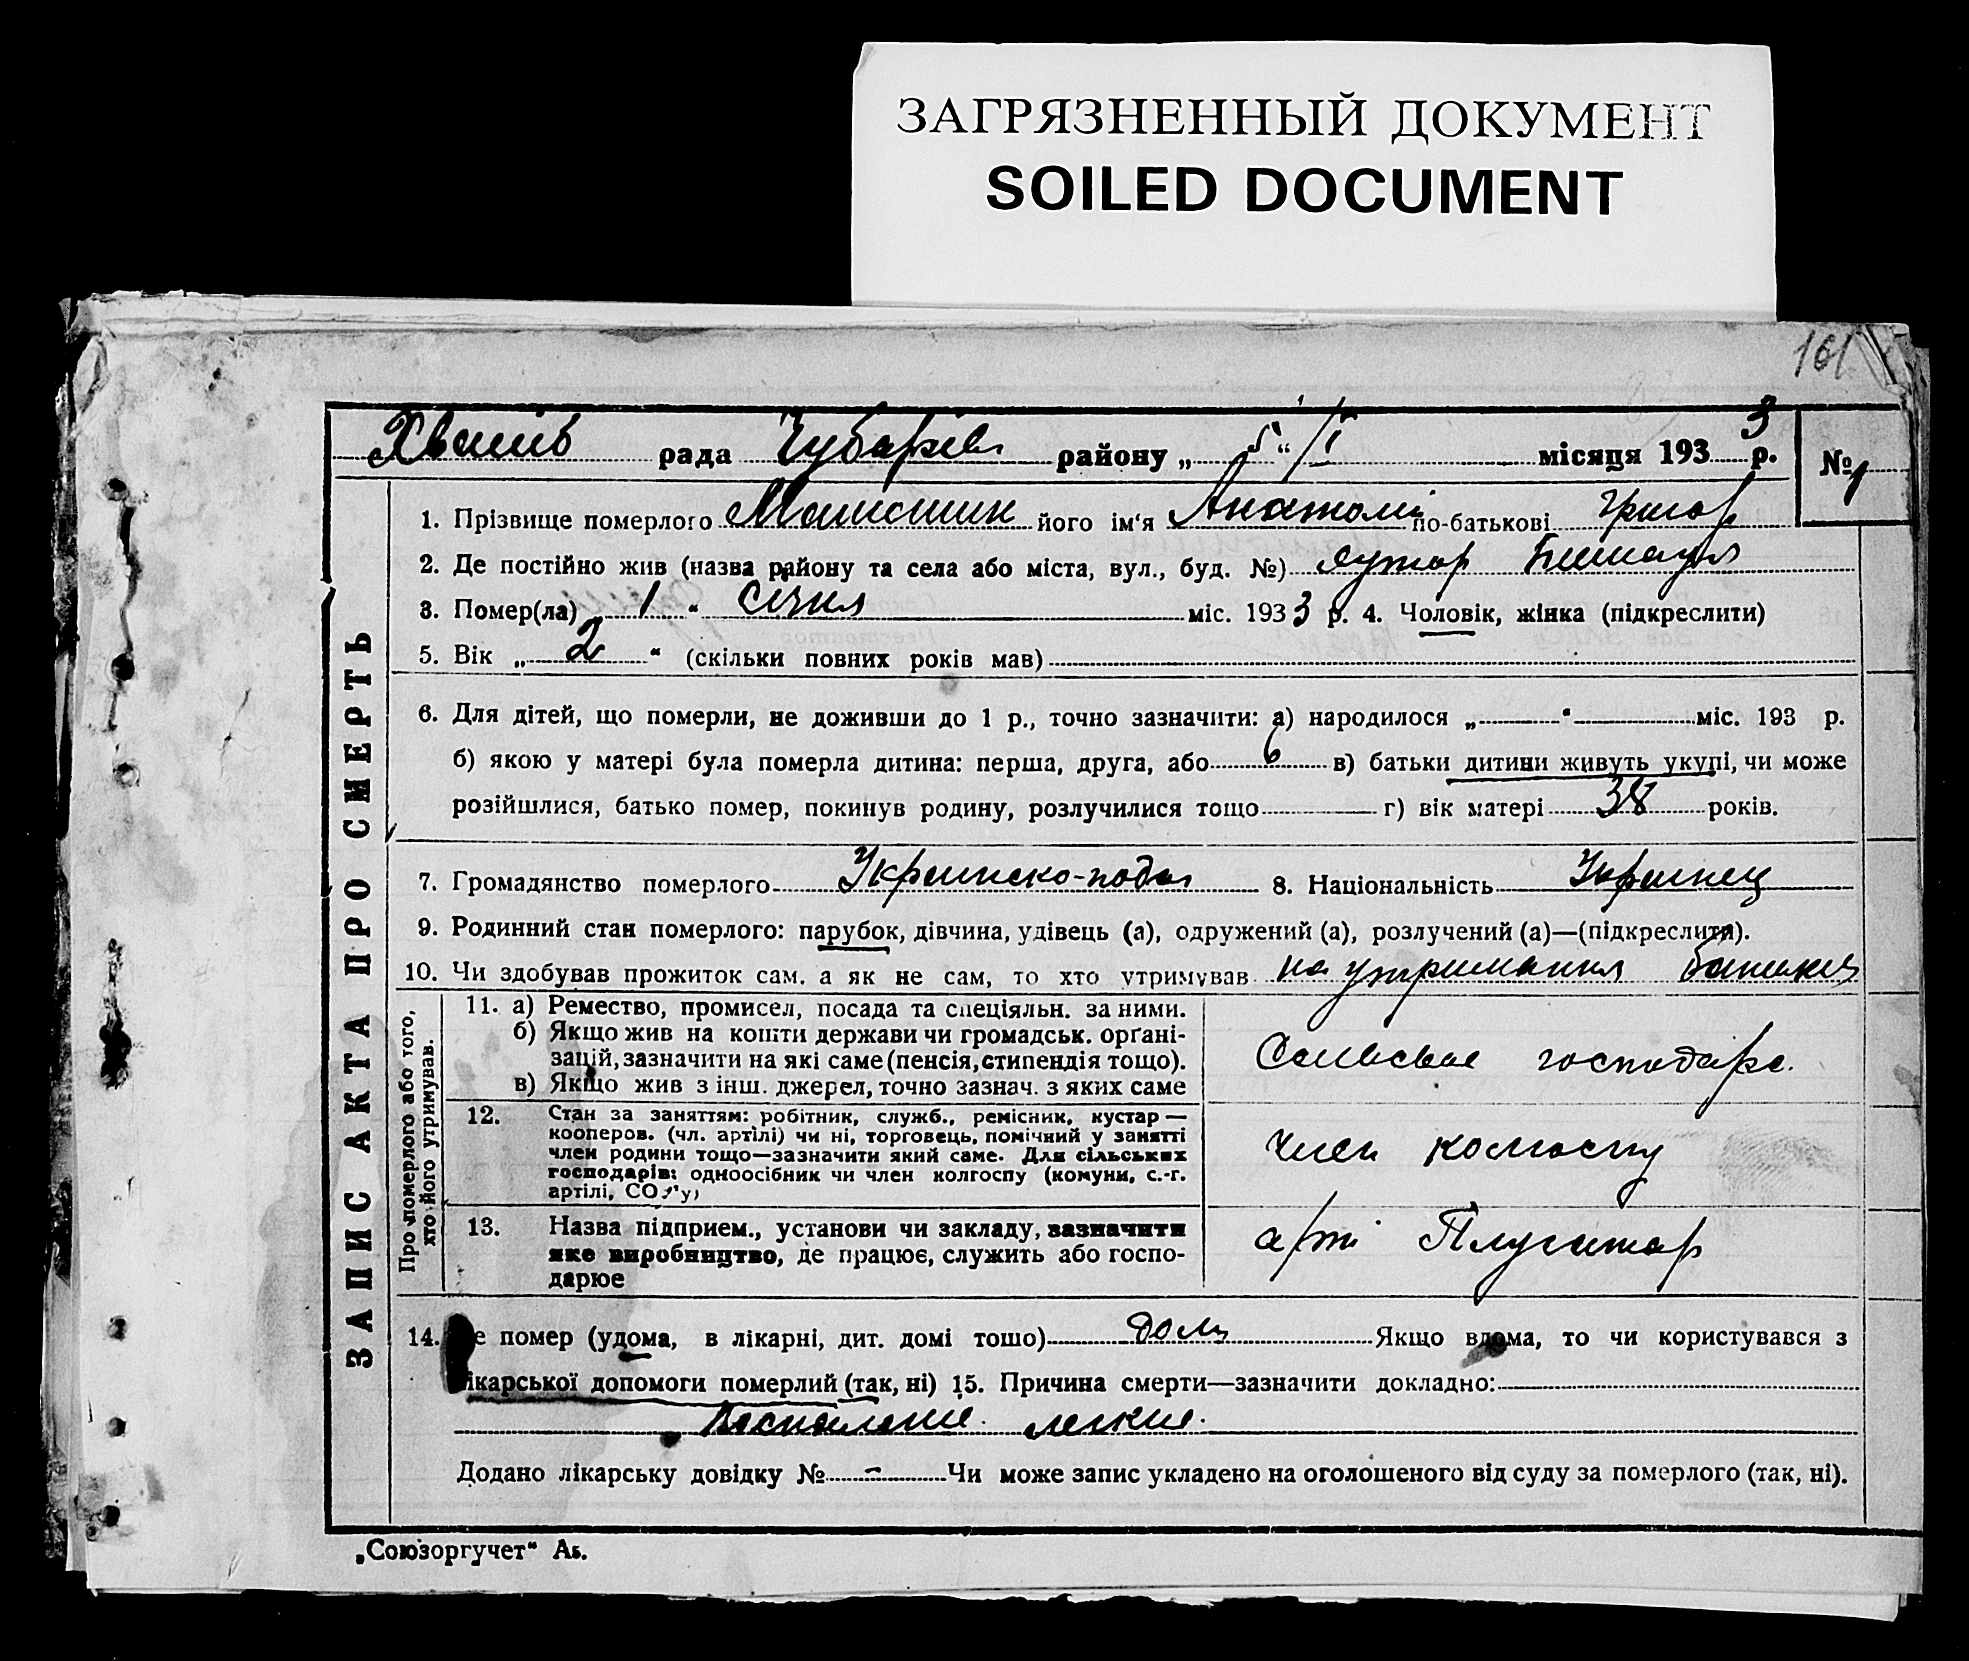 ЗАГРЯЗНЕННЫЙ ДОКУМЕНТ
SOILED DOCUMENT
161
рада Чубарів району „ 5 “ / І місяця 1933 р. № 1
ЗАПИС АКТА ПРО СМЕРТЬ
1. Прізвище померлого його ім'я Анатолі по-батькові Григор
2. Де постійно жив (назва району та села або міста, вул., буд. №) хутор
3. Помер(ла) 1 “ січня міс. 1933 р. 4. Чоловік, жінка (підкреслити)
5. Вік „ 2 “ (скільки повних років мав)
6. Для дітей, що померли, не доживши до 1 р., точно зазначити: а) народилося „ “ міс. 193 р.
б) якою у матері була померла дитина: перша, друга, або 6 в) батьки дитини живуть укупі, чи може
розійшлися, батько помер, покинув родину, розлучилися тощо г) вік матері 38 років.
7. Громадянство померлого 8. Національність Украинец
9. Родинний стан померлого: парубок, дівчина, удівець (а), одружений (а), розлучений (а)—(підкреслити).
10. Чи здобував прожиток сам, а як не сам, то хто утримував на утримания
Про померлого або того, хто його утримував.
11. а) Ремество, промисел, посада та спеціяльн. за ними.
б) Якщо жив на кошти держави чи громадськ. орґані-
зацій, зазначити на які саме (пенсія, стипендія тощо).
в) Якщо жив з інш. джерел, точно зазнач. з яких саме
господарс.
12. Стан за заняттям: робітник, служб., ремісник, кустар —
кооперов. (чл. артілі) чи ні, торговець, помічний у занятті
член родини тощо—зазначити який саме. Для сільських
господарів: одноосібник чи член колгоспу (комуни, с.-г.
артілі, СОЗ'у)
член колгоспу
13. Назва підприєм., установи чи закладу, зазначити
яке виробництво, де працює, служить або госпо-
дарює
арті Плугатар
14. помер (удома, в лікарні, дит. домі тощо) дома Якщо вдома, то чи користувався з
лікарської допомоги померлий (так, ні) 15. Причина смерти—зазначити докладно:
Воспаление легких.
Додано лікарську довідку № - Чи може запис укладено на оголошеного від суду за померлого (так, ні).
„Союзоргучет“ Аз.